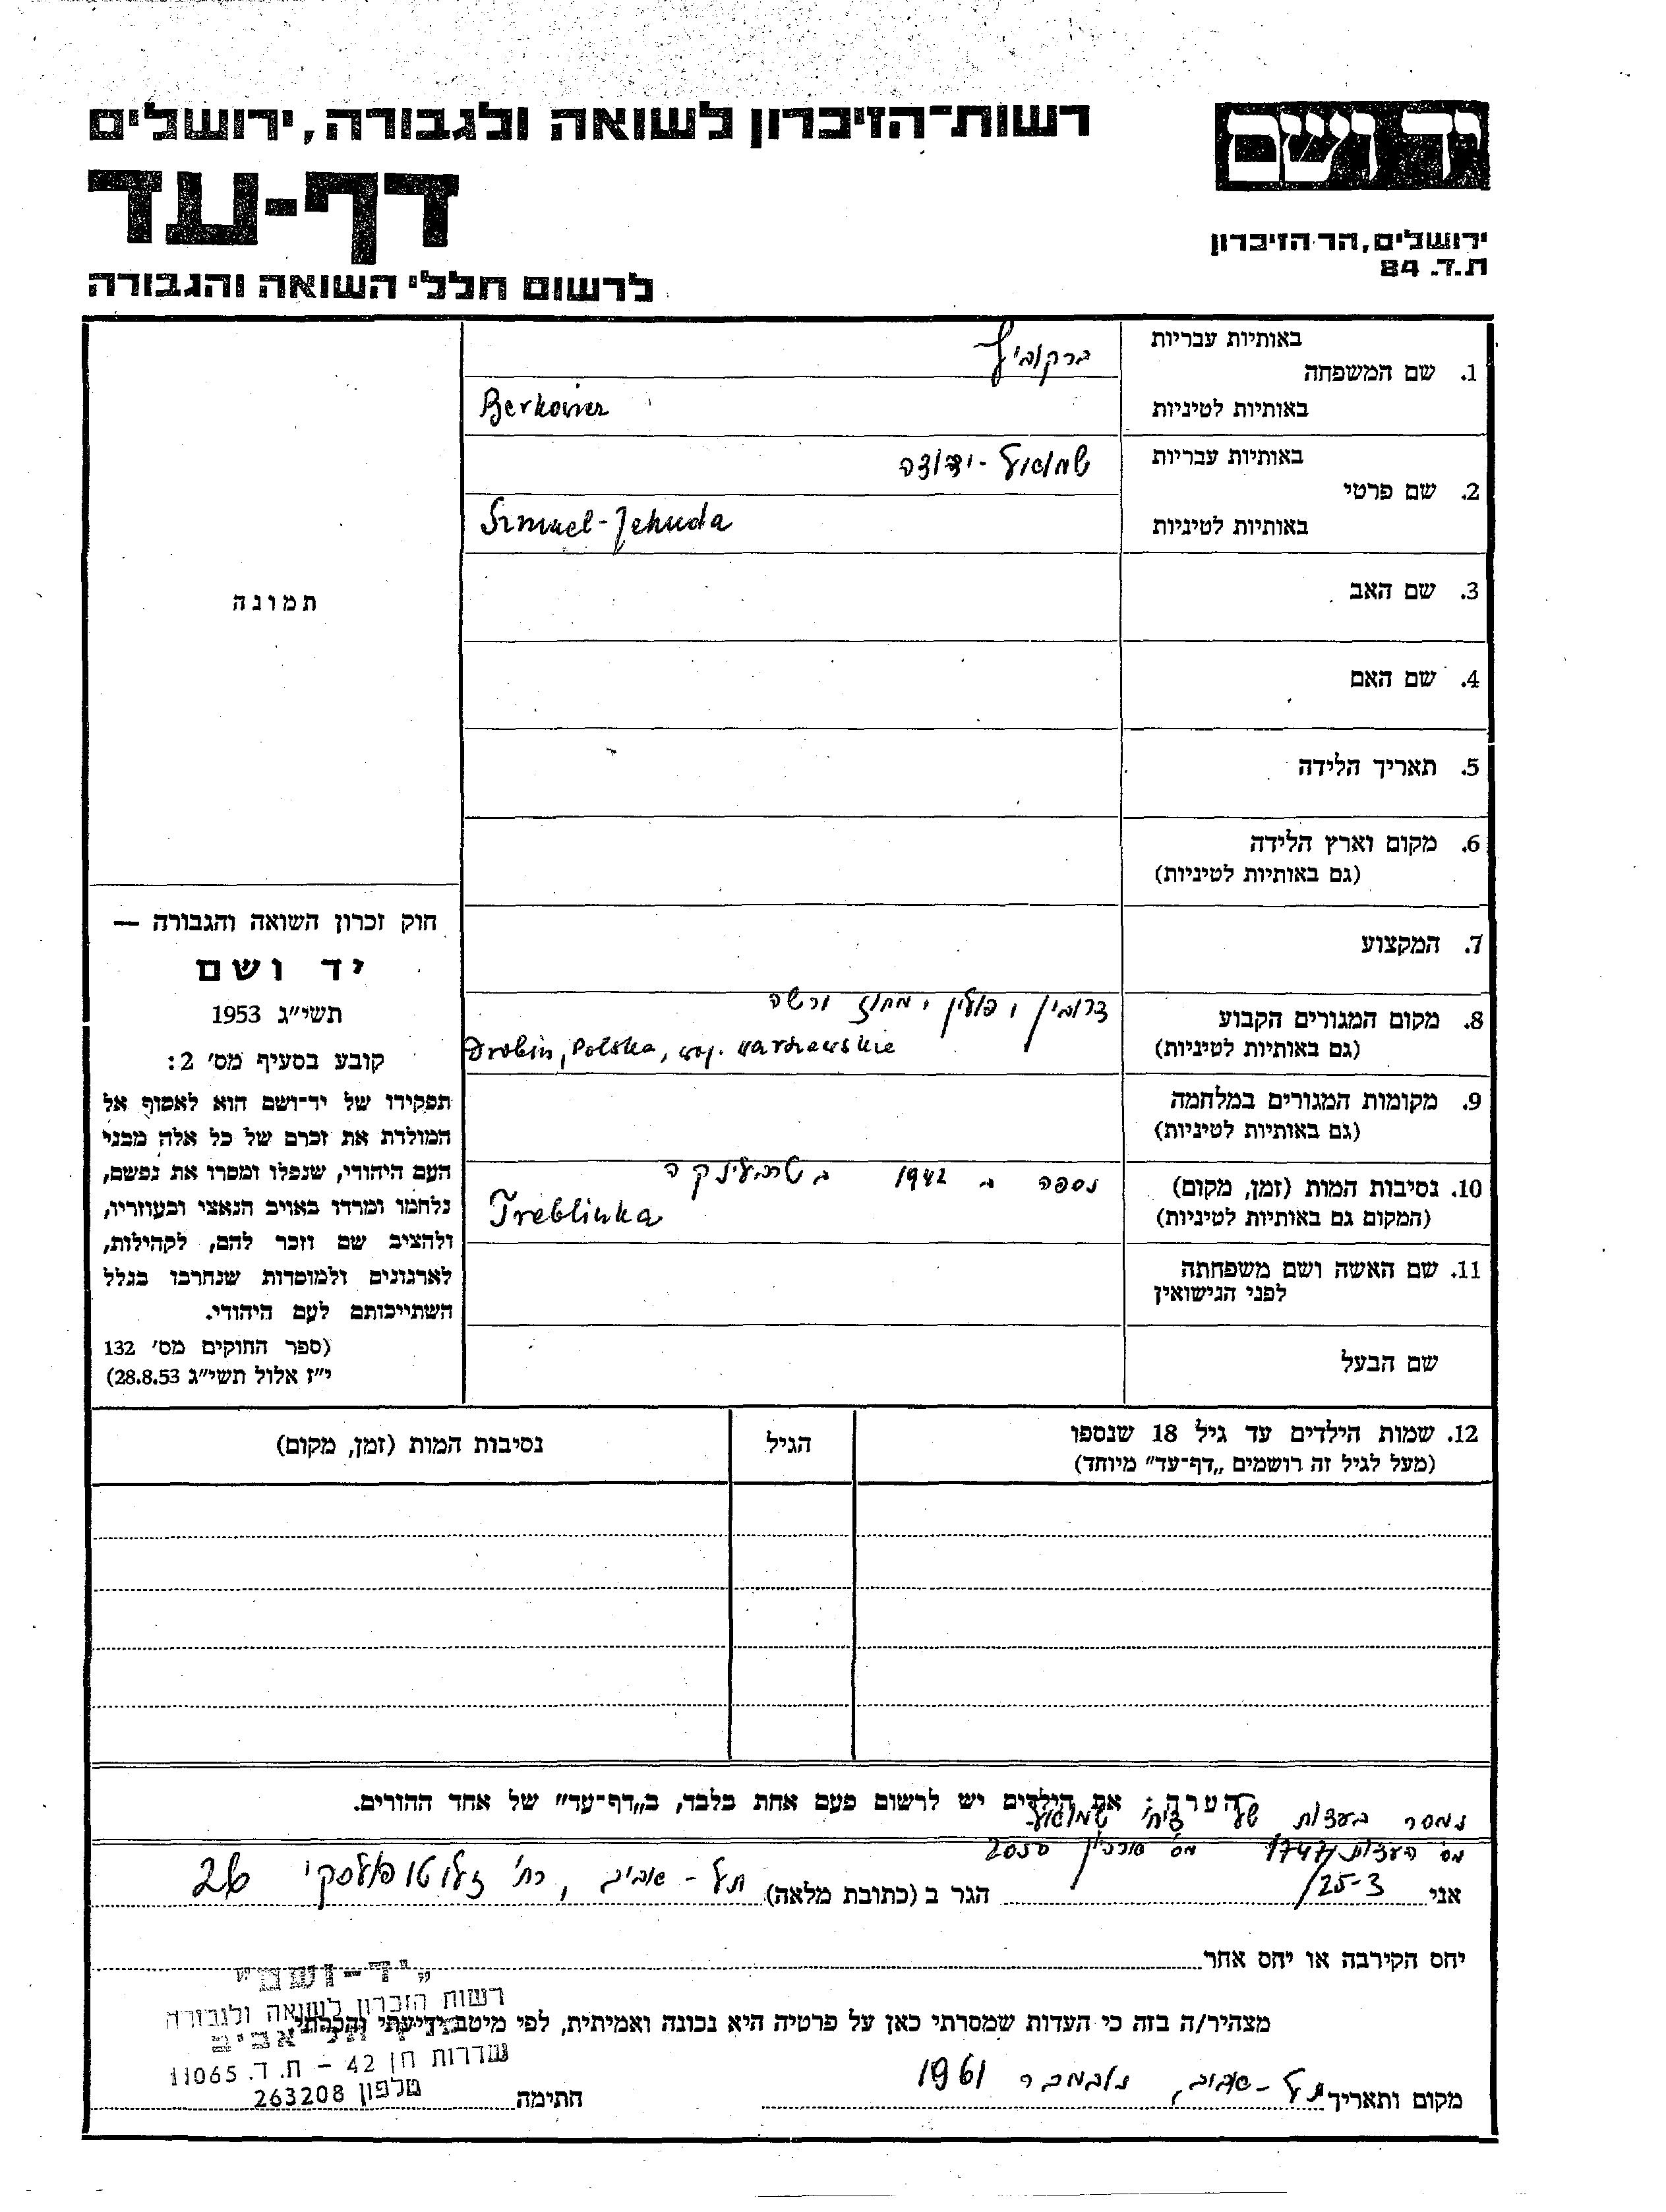 רשות־הזיכרון לשואה ולגבורה, ירושלים
יד ושם
דף-עד
ירושלים, הר הזיכרון
ת.ד. 84
לרשום חללי השואה והגבורה
באותיות עבריות
1. שם המשפחה
ברקוביץ
באותיות לטיניות
Berkowicz
באותיות עבריות
שמואל-יהודה
2. שם פרטי
באותיות לטיניות
Szmuel-Jehuda
תמונה
3. שם האב
4. שם האם
5. תאריך הלידה
6. מקום וארץ הלידה
(גם באותיות לטיניות)
7. המקצוע
8. מקום המגורים הקבוע
(גם באותיות לטיניות)
דרובין, פולין, מחוז ורשה
Drobin, Polska, woj. warszawskie
9. מקומות המגורים במלחמה
(גם באותיות לטיניות)
10. נסיבות המות (זמן, מקום)
(המקום גם באותיות לטיניות)
נספה ב 1942 בטרבלינקה
Treblinka
11. שם האשה ושם משפחתה
לפני הנישואין
שם הבעל
חוק זכרון השואה והגבורה —
יד ושם
תשי״ג 1953
קובע בסעיף מס׳ 2:
תפקידו של יד־ושם הוא לאסוף אל
המולדת את זכרם של כל אלה מבני
העם היהודי, שנפלו ומסרו את נפשם,
נלחמו ומרדו באויב הנאצי ובעוזריו,
ולהציב שם וזכר להם, לקהילות,
לארגונים ולמוסדות שנחרבו בגלל
השתייכותם לעם היהודי.
(ספר החוקים מס׳ 132
י״ז אלול תשי״ג 28.8.53)
12. שמות הילדים עד גיל 18 שנספו
(מעל לגיל זה רושמים „דף־עד״ מיוחד)
הגיל
נסיבות המות (זמן, מקום)
הערה: את הילדים יש לרשום פעם אחת בלבד, ב„דף־עד״ של אחד ההורים.
נמסר בעדות של שמואל
מס׳ העדות 1747/ מס׳ ארכיון 2050
אני 25-3/ הגר ב (כתובת מלאה) תל-אביב, רח׳ זלוטופולסקי 26
יחס הקירבה או יחס אחר
מצהיר/ה בזה כי העדות שמסרתי כאן על פרטיה היא נכונה ואמיתית, לפי מיטב ידיעתי והכרתי
מקום ותאריך תל-אביב, נובמבר 1961
חתימה
„יד-ושם״
רשות הזכרון לשואה ולגבורה
תל אביב
שדרות חן 42 – ת.ד. 11065
טלפון 263208